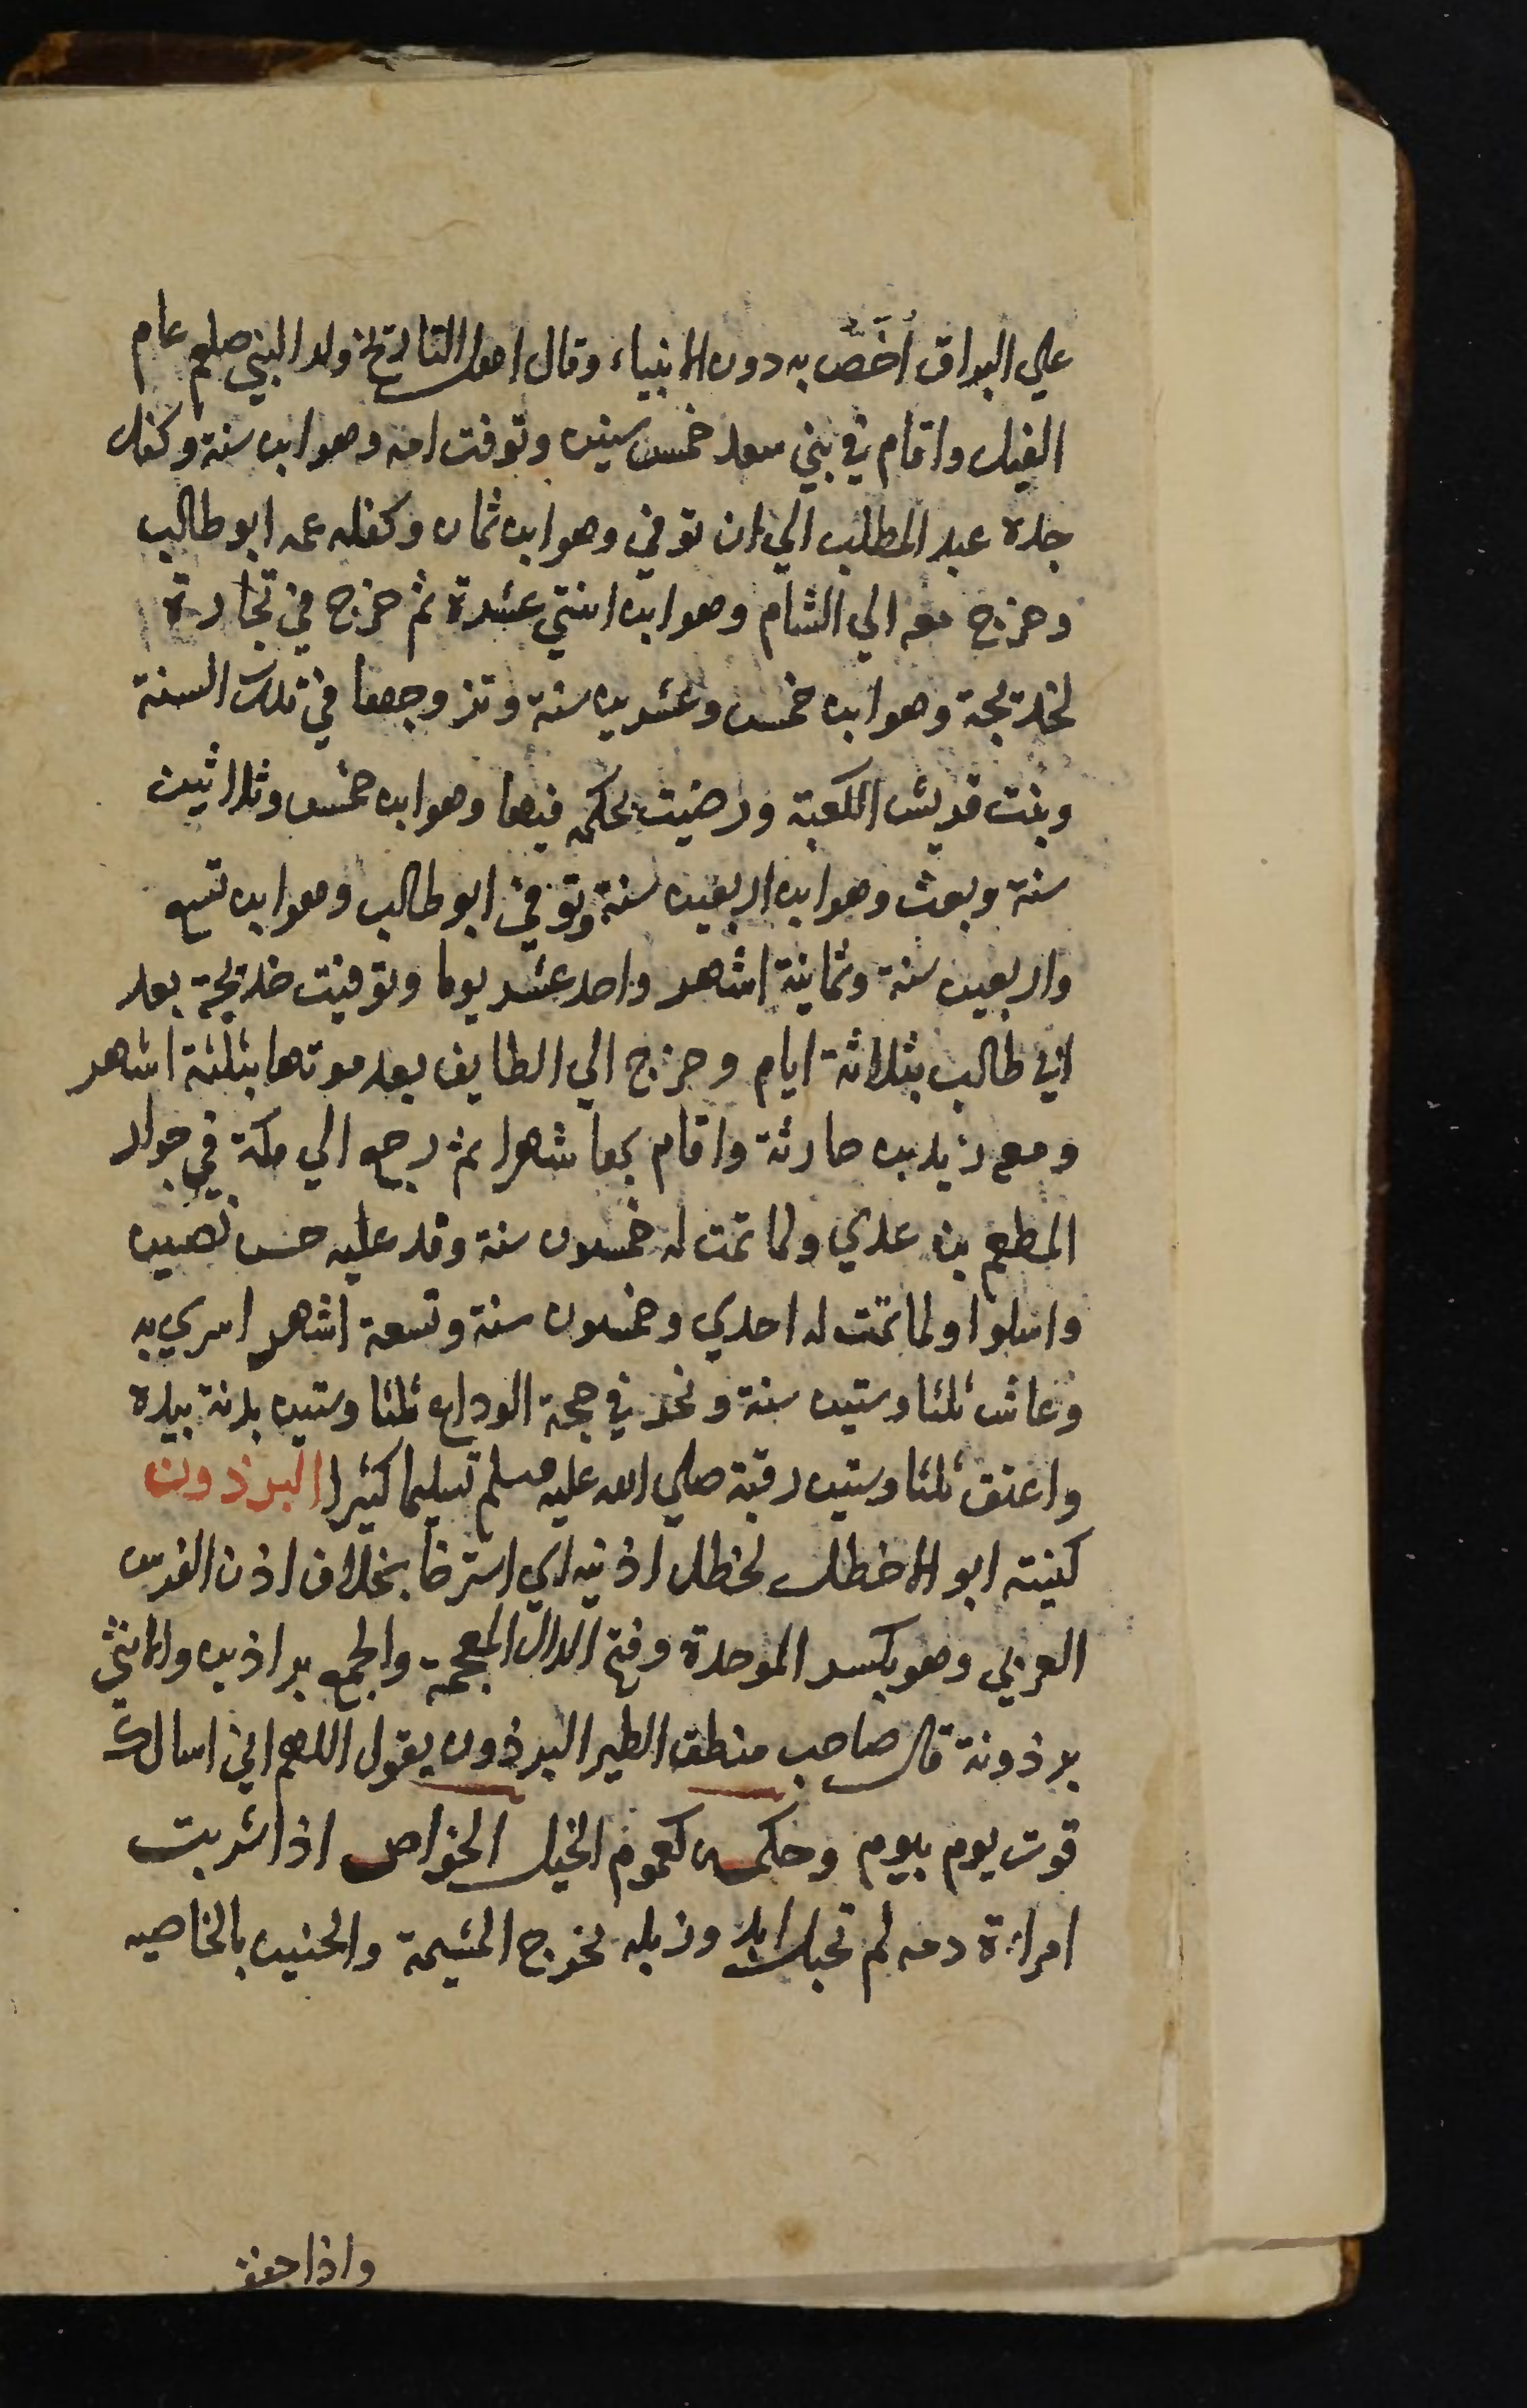 علي البراق أخَصُّ به دون الانبياء وقال اهل التاريخ ولد النبي صلعم عام
الفيل واقام في بني سعد خمس سنين وتوفت امه وهو ابن سنة وكفل
جده عبد المطلب الي ان توفي وهو ابن ثمان وكفله عمه ابو طالب
وخرج معه الي الشام وهو ابن اثنتي عشرة ثم خرج في تجارة
لخديجة وهو ابن خمس وعشرين سنة وتزوجها في تلك السنة
وبنت قريش الكعبة ورضيت بحكمه فيها وهو ابن خمس وثلاثين
سنة وبعث وهو ابن اربعين سنة وتوفي ابو طالب وهو ابن تسع
واربعين سنة وثمانية اشهر واحد عشر يوما وتوفيت خديجة بعد
ابي طالب بثلاثة ايام وخرج الي الطايف بعد موتها بثلثة اشهر
ومع زيد بن حارثة واقام بها شهرا ثم رجع الي مكة في جوار
المطعم بن عدي ولما تمت له خمسون سنة وفد عليه جن نصيبين
واسلموا ولما تمت له احدي وخمسون سنة وتسعة اشهر اسري به
وعاش ثلثا وستين سنة ونحر في حجة الوداع ثلثا وستين بدنة بيده
واعتق ثلثا وستين رقبة صلي الله عليه وسلم تسليما كثيرا البرذون
كنيته ابو الاخطل لخطل اذنيه اي استرخا بخلاف اذن الفرس
العربي وهو بكسر الموحدة وفتح الدال المعجمة والجمع براذين والانثي
برذونة قال صاحب منطق الطير البرذون يقول اللهم اني اسالك
قوت يوم بيوم وحكمه كعموم الخيل الخواص اذا شربت
امراءة دمه لم تحبل ابدا وزبله يخرج المشيمة والجنين بالخاصيه